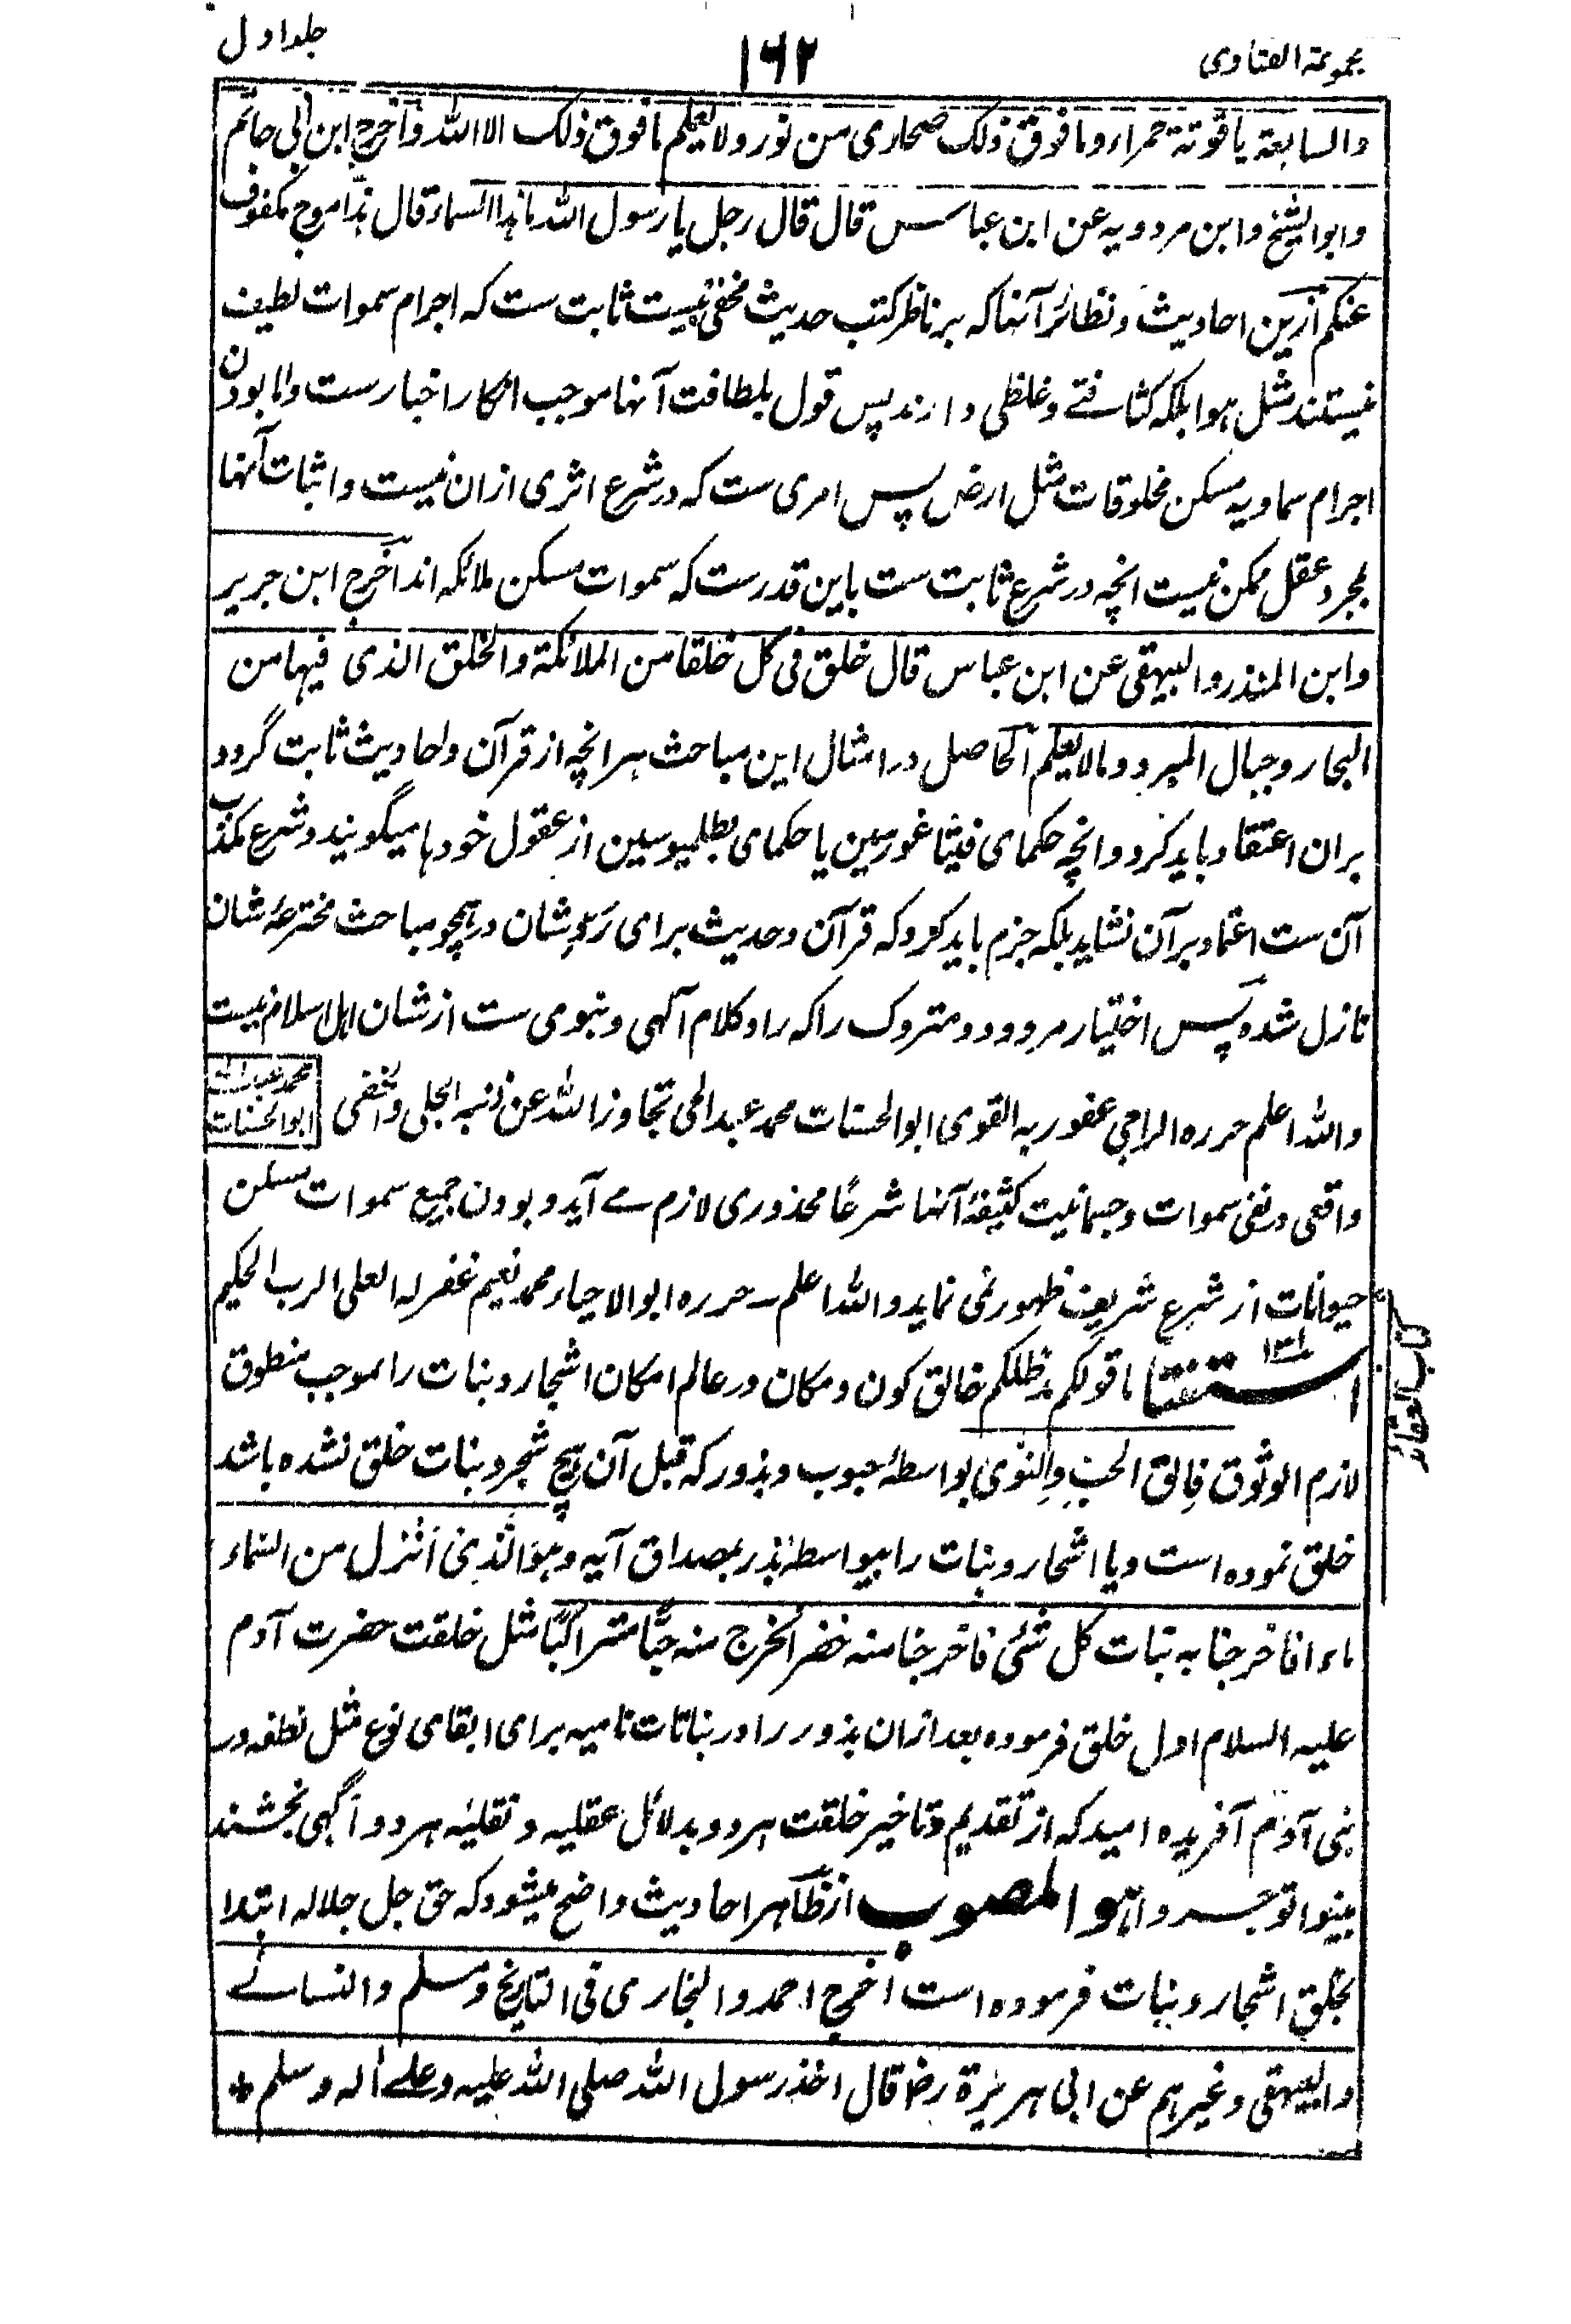 مجموعة الفتاوى
۱۶۲
جلد اول
والسابعة ياقوتة حمراء وما فوق ذلك صحارى من نور ولا يعلم ما فوق ذلك الا الله واخرج ابن ابى حاتم
وابو الشيخ وابن مردويه عن ابن عباس قال قال رجل يا رسول الله ما هذا السماء قال هذا موج مكفوف
عنكم ازين احاديث ونظائر آنها كه بر ناظر كتب حديث مخفى نيست ثابت ست كه اجرام سموات لطيف
نيستند مثل هوا بلكه كثافتے وغلظى دارند پس قول بلطافت آنها موجب انكار اخبار ست واما بودن
اجرام سماويه مسكن مخلوقات مثل ارض پس امرى ست كه در شرع اثرى ازان نيست واثبات آنها
بمجرد عقل ممكن نيست انچه در شرع ثابت ست باين قدر ست كه سموات مسكن ملائكه اند اخرج ابن جرير
وابن المنذر والبيهقى عن ابن عباس قال خلق فى كل خلقا من الملائكة والخلق الذى فيها من
البحار وجبال البرد وما لا يعلم الحاصل در امثال اين مباحث هر انچه از قرآن واحاديث ثابت گردد
بران اعتقاد بايد كرد وانچه حكماى فيثاغورسين يا حكماى بطلميوسين از عقول خودها ميگويند وشرع مكذب
آن ست اعتماد بر آن نشايد بلكه جزم بايد كرد كه قرآن وحديث براى رد شان در همچو مباحث مخترعۀ شان
نازل شده پس اختيار مردود ومتروك را كه راد كلام آلهى ونبوى ست از شان اهل اسلام نيست
والله اعلم حرره الراجى عفو ربه القوى ابو الحسنات محمد عبد الحى تجاوز الله عن ذنبه الجلى والخفى
محمد عبد الحى
ابو الحسنات
واقعى در نفى سموات وجسمانيت كثيفۀ آنها شرعًا محذورى لازم مے آيد وبودن جميع سموات مسكن
حيوانات از شرع شريف ظهور نمى نمايد والله اعلم حرره ابو الاحياء محمد نعيم غفر له العلى الرب الحكيم
استفتا ما قولكم مد ظلكم خالق كون ومكان در عالم امكان اشجار ونبات را بموجب منطوق
لازم الوثوق فالق الحب والنوى بواسطۀ حبوب وبذور كه قبل آن هيچ شجر ونبات خلق نشده باشد
خلق نموده است ويا اشجار ونبات را بيواسطۀ بذر بمصداق آيه وهو الذى انزل من السماء
ماء فاخرجنا به نبات كل شئى فاخرجنا منه خضرا نخرج منه حبًا متراكبًا مثل خلقت حضرت آدم
عليه السلام اول خلق فرموده بعد ازان بذور را در نباتات ناميه براى ابقاى نوع مثل نطفه در
بنى آدم آفريده اميد كه از تقديم وتاخير خلقت هر دو بدلائل عقليه ونقليه هر دو آگهى بخشند
بينوا توجروا هو المصوب از ظاهر احاديث واضح ميشود كه حق جل جلاله ابتدا
بخلق اشجار ونبات فرموده است اخرج احمد والبخارى فى التاريخ ومسلم والنسائے
والبيهقى وغيرهم عن ابى هريرة رض قال اخذ رسول الله صلى الله عليه وعلے اله وسلم